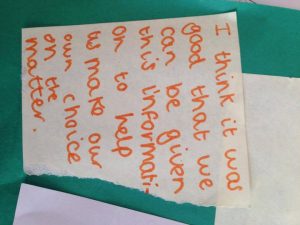 I think it was
good that we
can be given
this informati-
on to help
us make our
own choice
on the
matter.